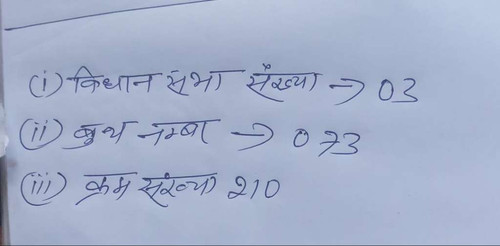 (i) विधान सभा सँख्या → 03
(ii) बुथ नम्बर → 073
(iii) क्रम संख्या 210